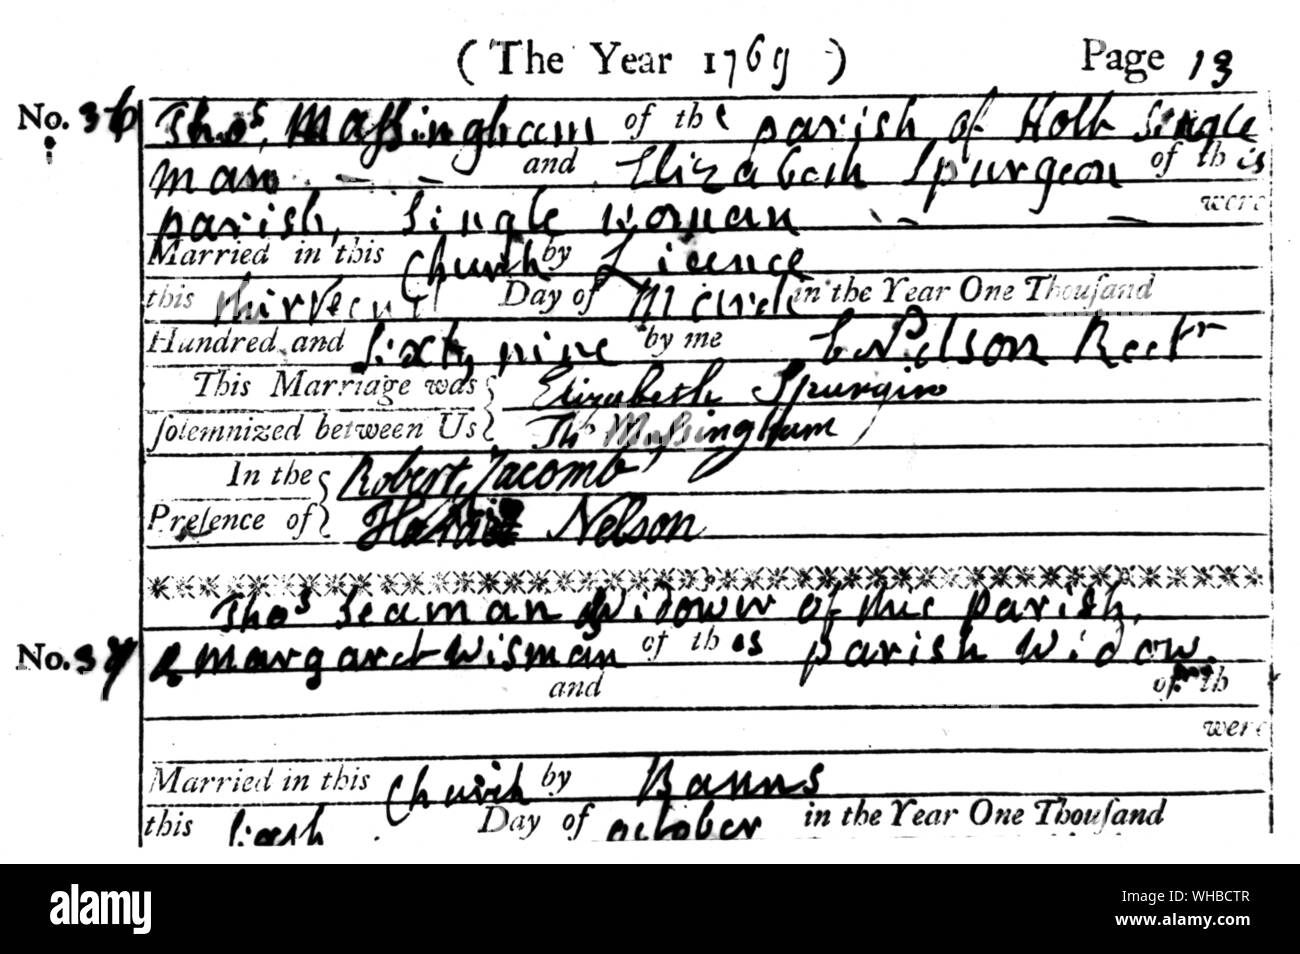 ( The Year 1769 ) Page 13
No. 36 Thos. Massingham of the parish of Holt Single
man and Elizabeth Spurgeon of this
parish, Single woman were
Married in this Church by Licence
this thirteent Day of March in the Year One Thousand
Hundred and Sixty nine by me E Nelson Rectr
This Marriage was Elizabeth Spurgin
solemnized between Us Tho Massingham
In the Robert Jacomb
Presence of Nelson
Thos Seaman Widower of this parish,
No. 37 & Margaret Wisman of this parish Widow.
and of th
were
Married in this Church by Banns
this Day of october in the Year One Thousand
alamy
alamy
Image ID: WHBCTR
www.alamy.com